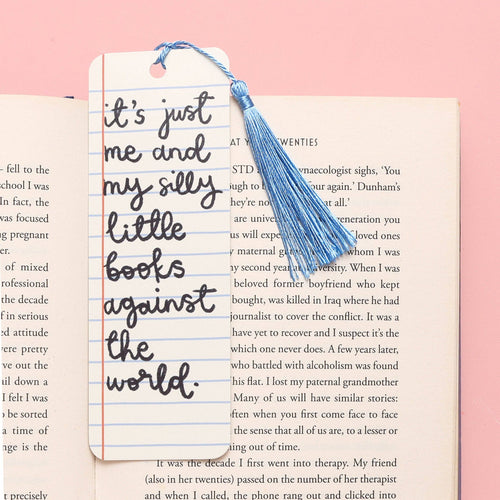 it's just
me and
my silly
little
books
against
the
world.
fell to the
school I was
In fact, the
was focused
ng pregnant
er.
of mixed
rofessional
the decade
f in serious
ed attitude
were pretty
ve out the
ail down a
I felt I was
o be sorted
a time of
nge is the
t precisely
AT YOUR TWENTIES
STD gynaecologist sighs, 'You
ough to b our again.' Dunham's
they're no at all.'
are unive eneration you
us will expe loved ones
maternal ga whom I was
ny second year university. When I was
beloved former boyfriend who kept
bought, was killed in Iraq where he had
journalist to cover the conflict. It was a
have yet to recover and I suspect it's the
which one never does. A few years later,
who battled with alcoholism was found
his flat. I lost my paternal grandmother
Many of us will have similar stories:
often when you first come to face
the sense that all of us are, to a lesser or
ing out of time.
It was the decade I first went into therapy. My friend
(also in her twenties) passed on the number of her therapist
and when I called, the phone rang out and clicked into